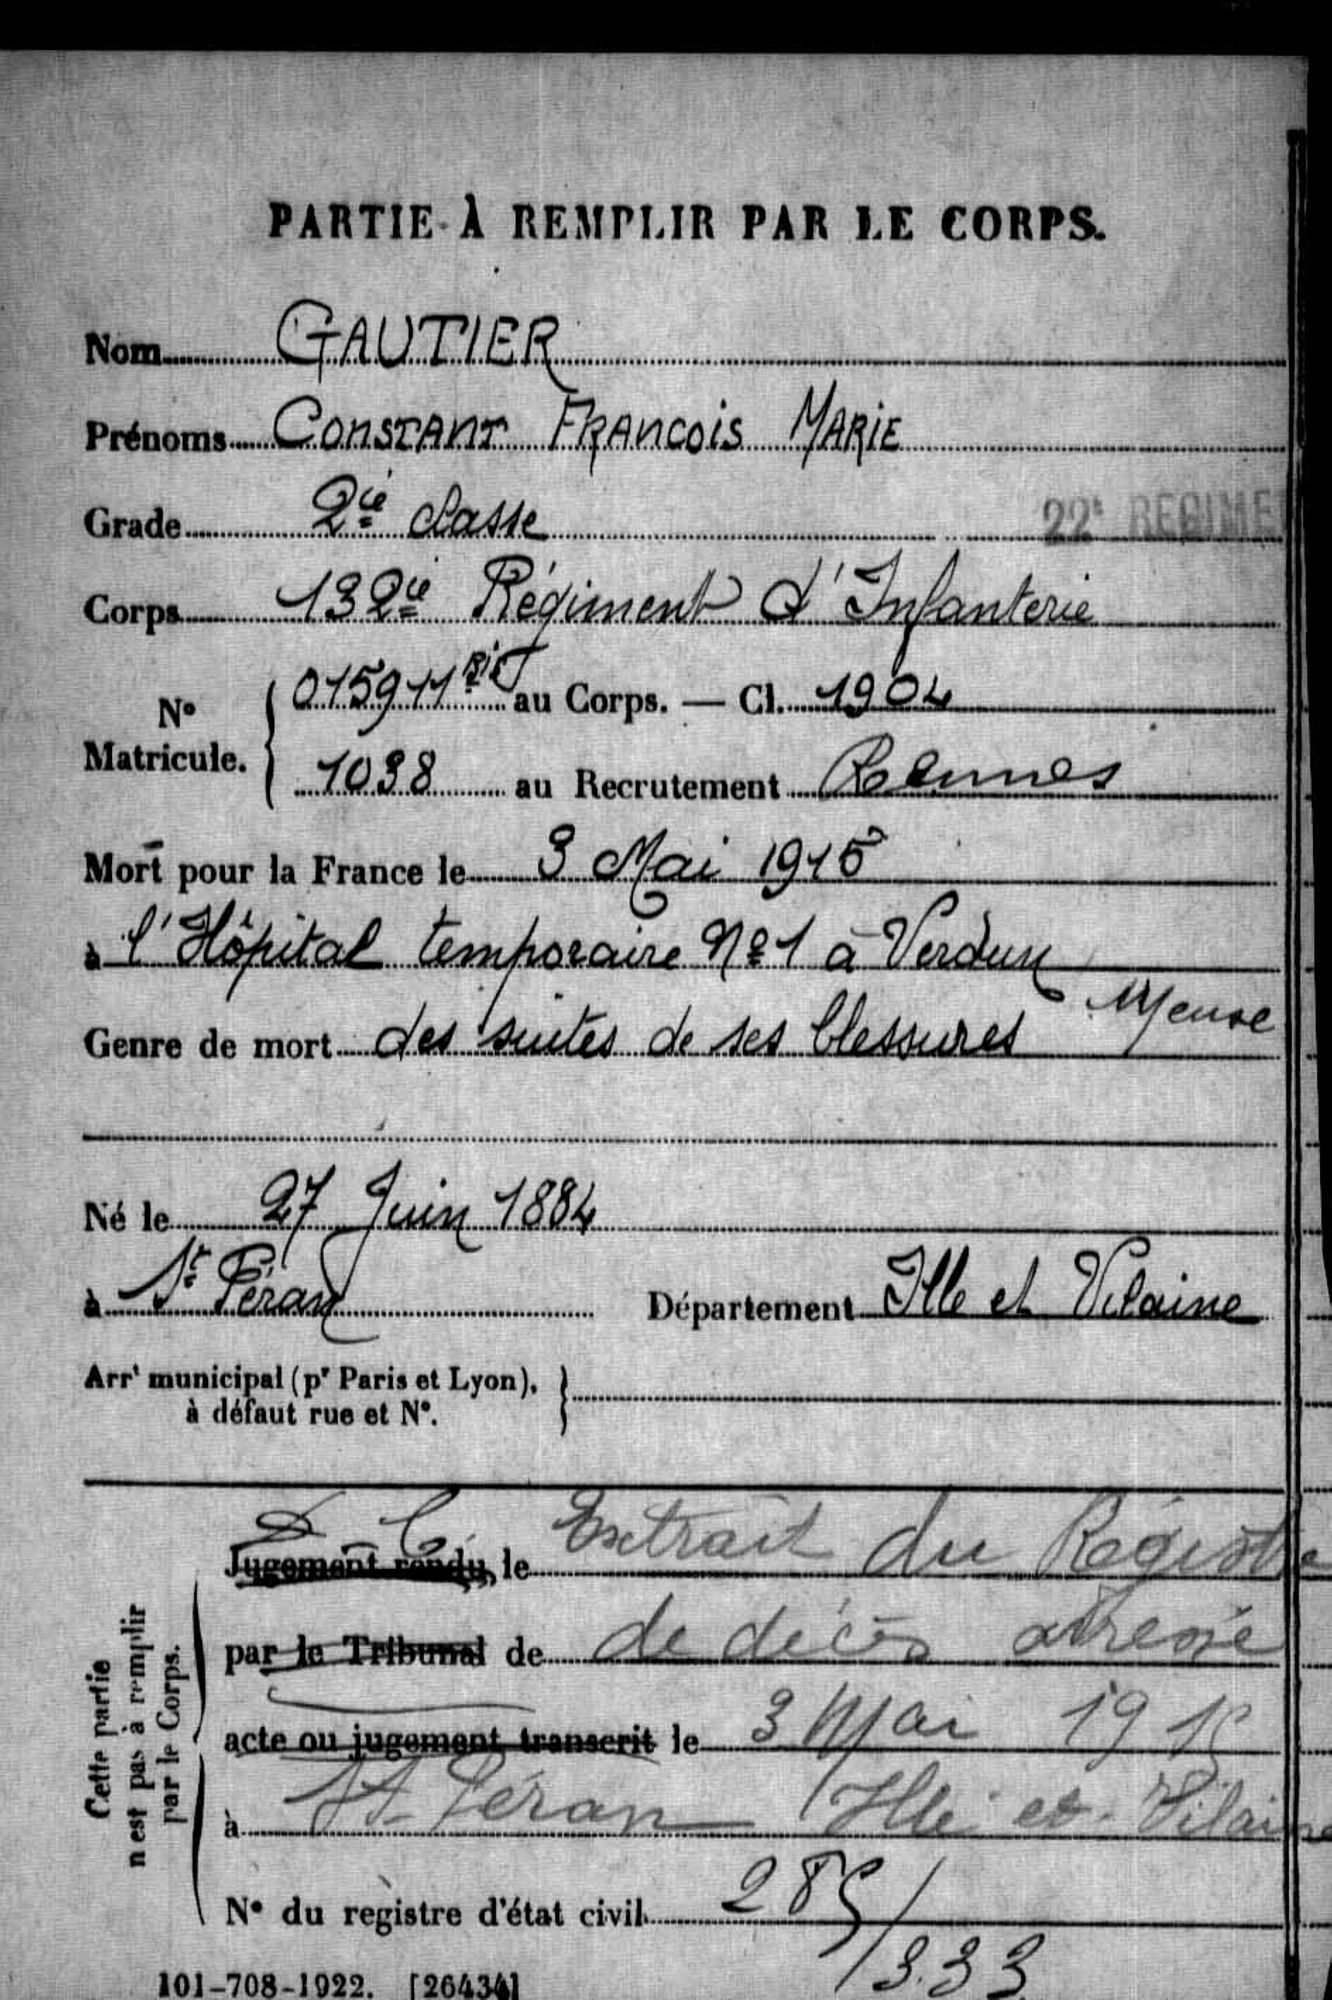 PARTIE À REMPLIR PAR LE CORPS.
Nom GAUTIER
Prénoms CONSTANT FRANCOIS MARIE
Grade 2ie classe
22e REGIME
Corps 132ie Régiment d'Infanterie
N° Matricule.
015911 bis au Corps. — Cl. 1904
1038 au Recrutement Rennes
Mort pour la France le 3 Mai 1915
à l'Hôpital temporaire No 1 à Verdun
Meuse
Genre de mort des suites de ses blessures
Né le 27 Juin 1884
à St Péran Département Ille et Vilaine
Arrt municipal (pr Paris et Lyon),
à défaut rue et N°.
Cette partie
n'est pas à remplir
par le Corps.
Jugement rendu, le Extrait du Régistre
par le Tribunal de de décès adressé
acte ou jugement transcrit le 3 Mai 1915
à St Péran Ille et Vilaine
N° du registre d'état civil 285/333
101-708-1922. [26434]